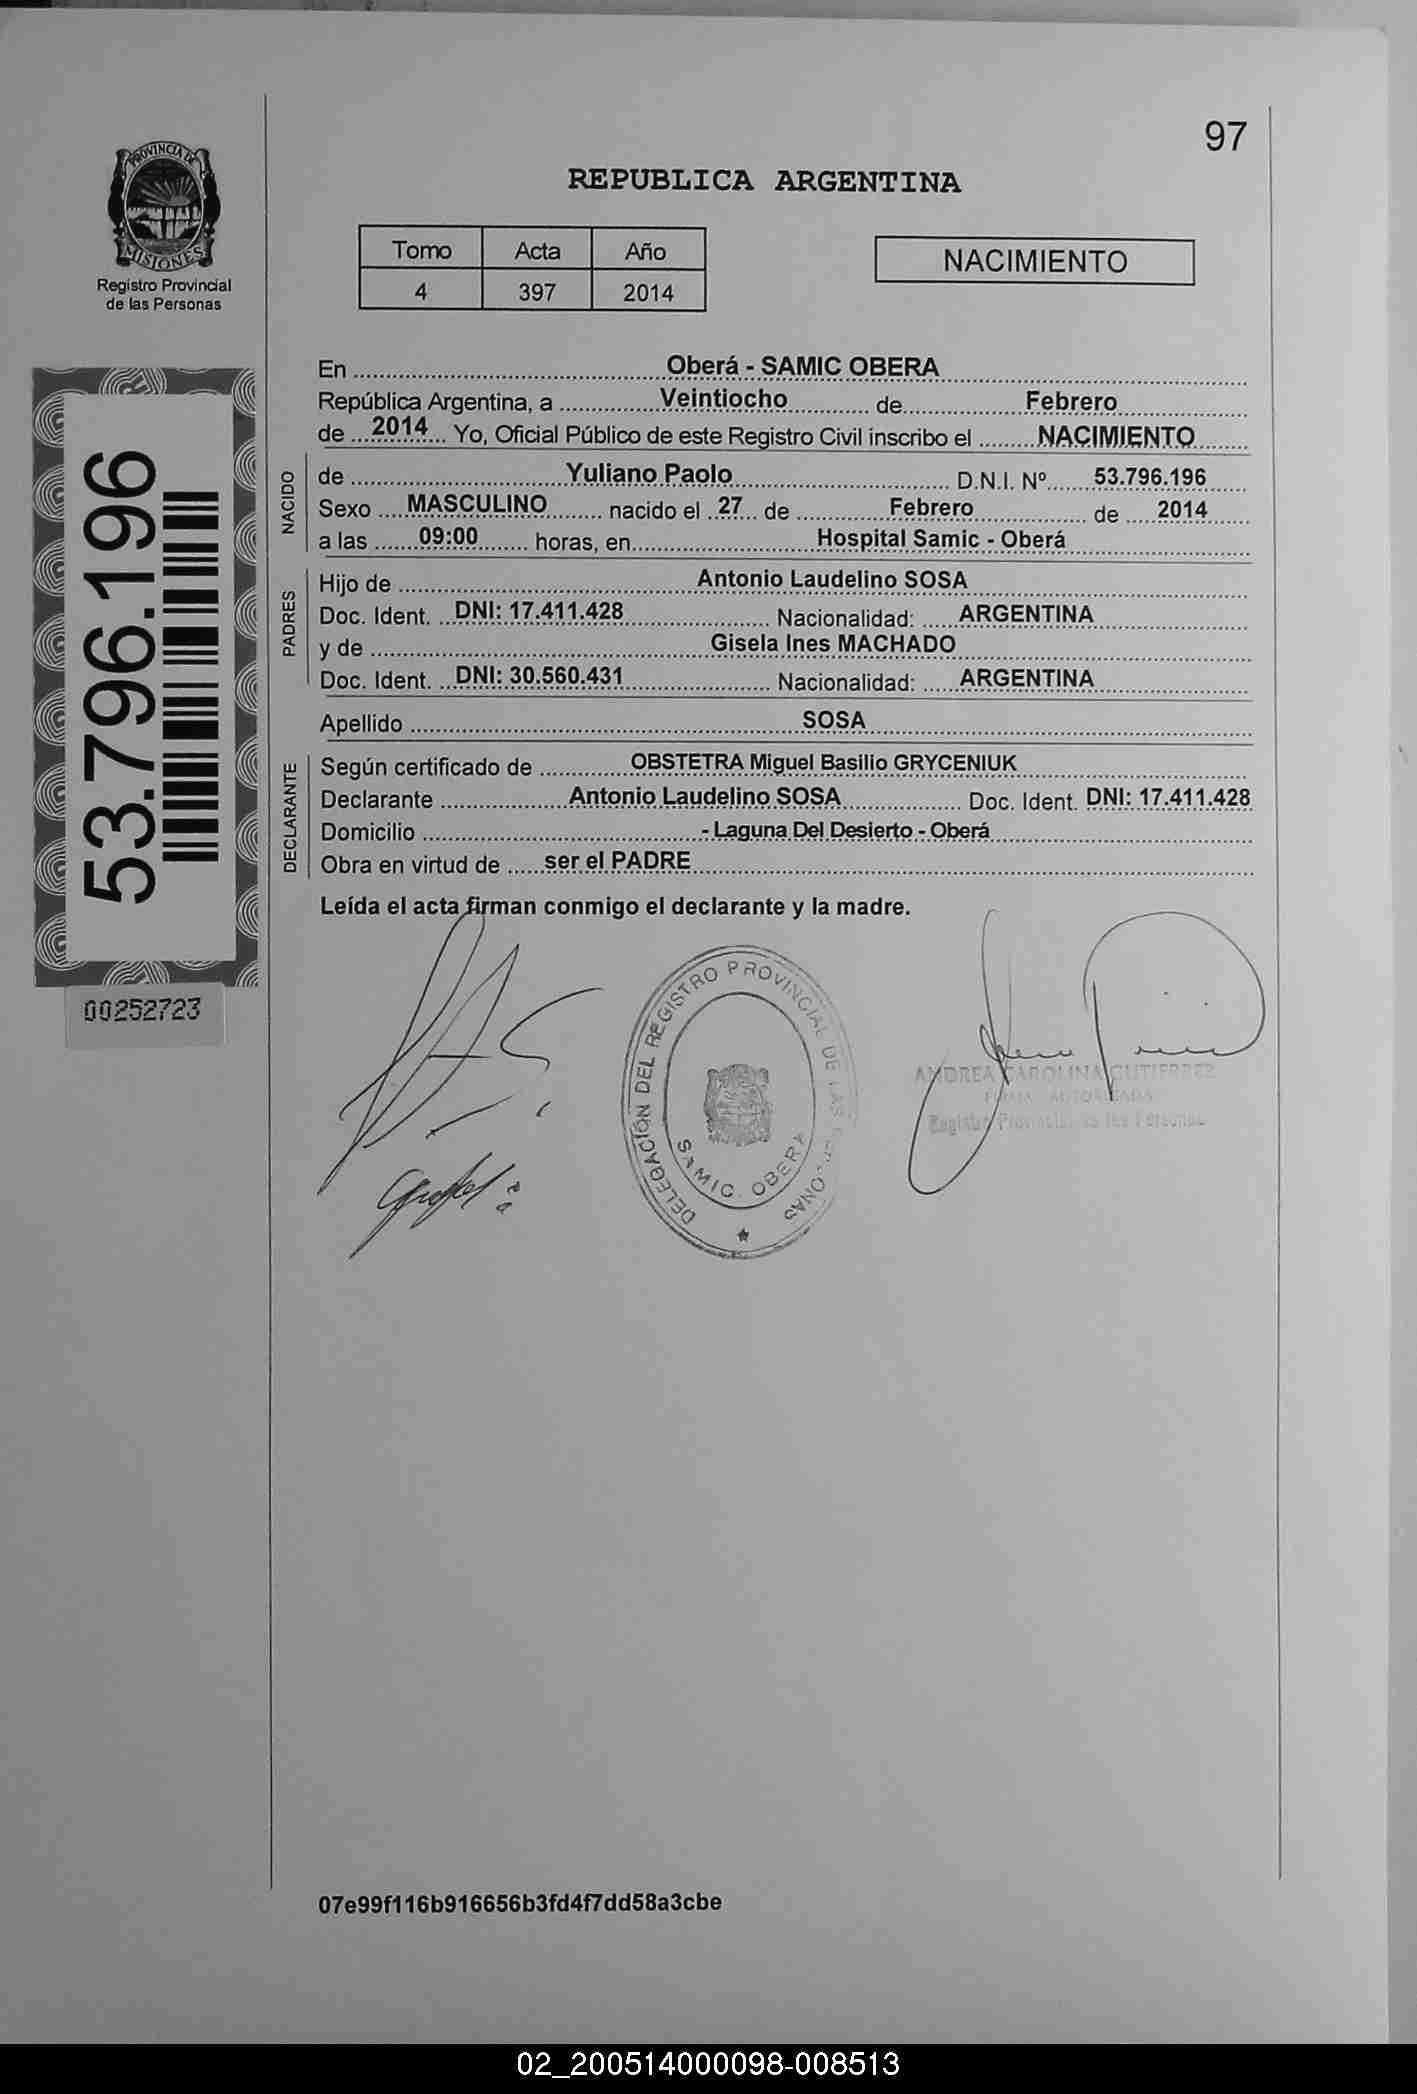 97
PROVINCIA DE
MISIONES
Registro Provincial
de las Personas
REPUBLICA ARGENTINA
Tomo Acta Año
4 397 2014
NACIMIENTO
53.796.196
00252723
En Oberá - SAMIC OBERA
República Argentina, a Veintiocho de Febrero
de 2014 Yo, Oficial Público de este Registro Civil inscribo el NACIMIENTO
NACIDO
de Yuliano Paolo D.N.I. Nº 53.796.196
Sexo MASCULINO nacido el 27 de Febrero de 2014
a las 09:00 horas, en Hospital Samic - Oberá
PADRES
Hijo de Antonio Laudelino SOSA
Doc. Ident. DNI: 17.411.428 Nacionalidad: ARGENTINA
y de Gisela Ines MACHADO
Doc. Ident. DNI: 30.560.431 Nacionalidad: ARGENTINA
Apellido SOSA
DECLARANTE
Según certificado de OBSTETRA Miguel Basilio GRYCENIUK
Declarante Antonio Laudelino SOSA Doc. Ident. DNI: 17.411.428
Domicilio - Laguna Del Desierto - Oberá
Obra en virtud de ser el PADRE
Leída el acta firman conmigo el declarante y la madre.
DELEGACIÓN DEL REGISTRO PROVINCIAL DE LAS PERSONAS
SAMIC. OBERA
ANDREA CAROLINA GUTIERREZ
FIRMA AUTORIZADA
Registro Provincial de las Personas
07e99f116b916656b3fd4f7dd58a3cbe
02_200514000098-008513